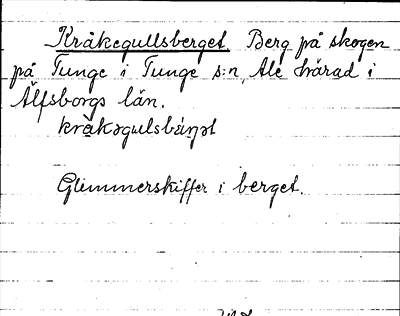 Kråkegullsberget Berg på skogen
på Tunge i Tunge s:n, Ale härad i
Älfsborgs län.
kràkəgulsbǽrjət
Glimmerskiffer i berget.